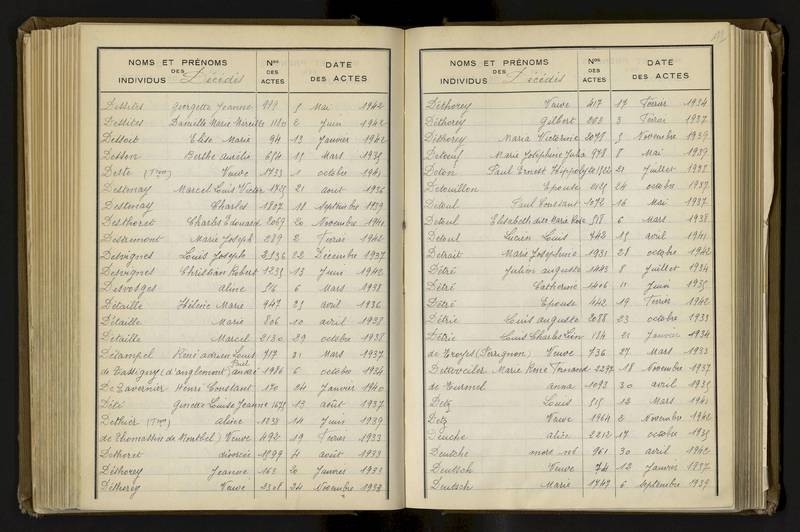 NOMS ET PRÉNOMS DES INDIVIDUS Décédés Nos DES ACTES DATE DES ACTES
Georgette Jeanne 5 Mai 1942
Danielle Marie Mireille 1180 2 Juin 1942
Dessoit Elise Marie 94 13 Janvier 1942
Desson Berthe Aurélie 654 15 Mars 1935
Deste Veuve 1733 1 octobre 1941
Destenay Marcel Louis Victor 21 août 1936
Destenay Charles 1807 18 Septembre 1939
Desthoret Charles Edouard 2069 20 Novembre 1941
Marie Joseph 289 2 Février 1942
Desvignes Louis Joseph 2536 22 Décembre 1937
Desvignes Christian Robert 1235 13 Juin 1942
Desvosges aline 516 6 Mars 1938
Détaille Hélène Marie 947 25 avril 1936
Détaille Marie 806 10 avril 1938
Détaille Marcel 2130 29 octobre 1938
Détampel René adrien Louis 717 31 Mars 1937
de Tassigny (d'anglemont) Paul andré 1986 6 octobre 1934
De Tavernier Henri Constant 170 24 Janvier 1940
Dété Ginette Louise Jeanne 1675 13 août 1937
Dethier aline 1238 14 Juin 1939
de Thomassin de Montbel Veuve 492 19 Février 1933
Dethoret divorcée 1799 4 août 1933
Déthorey Jeanne 163 20 Janvier 1933
Déthorey Veuve 2308 24 Novembre 1938
NOMS ET PRÉNOMS DES INDIVIDUS Décédés Nos DES ACTES DATE DES ACTES
Déthorey Veuve 417 17 Février 1934
Déthorey Gilbert 202 3 Février 1937
Déthorey Marie Victorine 2078 5 Novembre 1939
Detoeuf Marie Joséphine Julia 978 8 Mai 1939
Deton Paul Ernest Hippolyte 1522 21 Juillet 1938
Detouillon Epouse 2125 24 octobre 1937
Deteul Paul Constant 1072 16 Mai 1937
Deteul Elisabeth 518 6 Mars 1938
Deteul Lucien Louis 742 15 avril 1941
Detrait Marie Joséphine 1931 28 octobre 1942
Détré Julien auguste 1443 8 Juillet 1934
Détré Catherine 1416 11 Juin 1935
Détré Epouse 442 19 Février 1942
Détrie Louis auguste 2088 23 octobre 1935
Détrie Louis Charles Léon 184 21 Janvier 1934
de Troyes (Perrignon) Veuve 736 27 Mars 1933
Marie René Fernand 2297 18 Novembre 1937
de Turmel anna 1093 30 avril 1935
Detz Louis 515 12 Mars 1941
Detz Veuve 1964 2 Novembre 1942
Deuche alice 2212 17 octobre 1935
Deutsche mort né 961 30 avril 1942
Deutsch Veuve 74 12 Janvier 1937
Deutsch Marie 1747 6 Septembre 1939